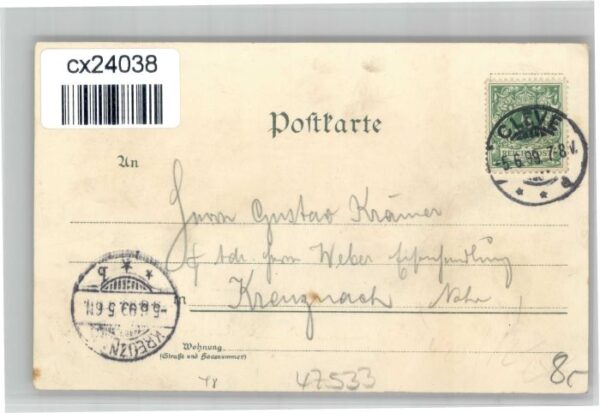 cx24038
Postkarte
An
CLEVE
REICHSPOST
-5.6.99.7-8V.
* * a
Herrn Gustav Krämer
Adr. Herrn Weber
in Kreuznach Nahe
KREUZN
-5.6.99.5-6N.
* * b
Wohnung
(Straße und Hausnummer)
47533
8,-